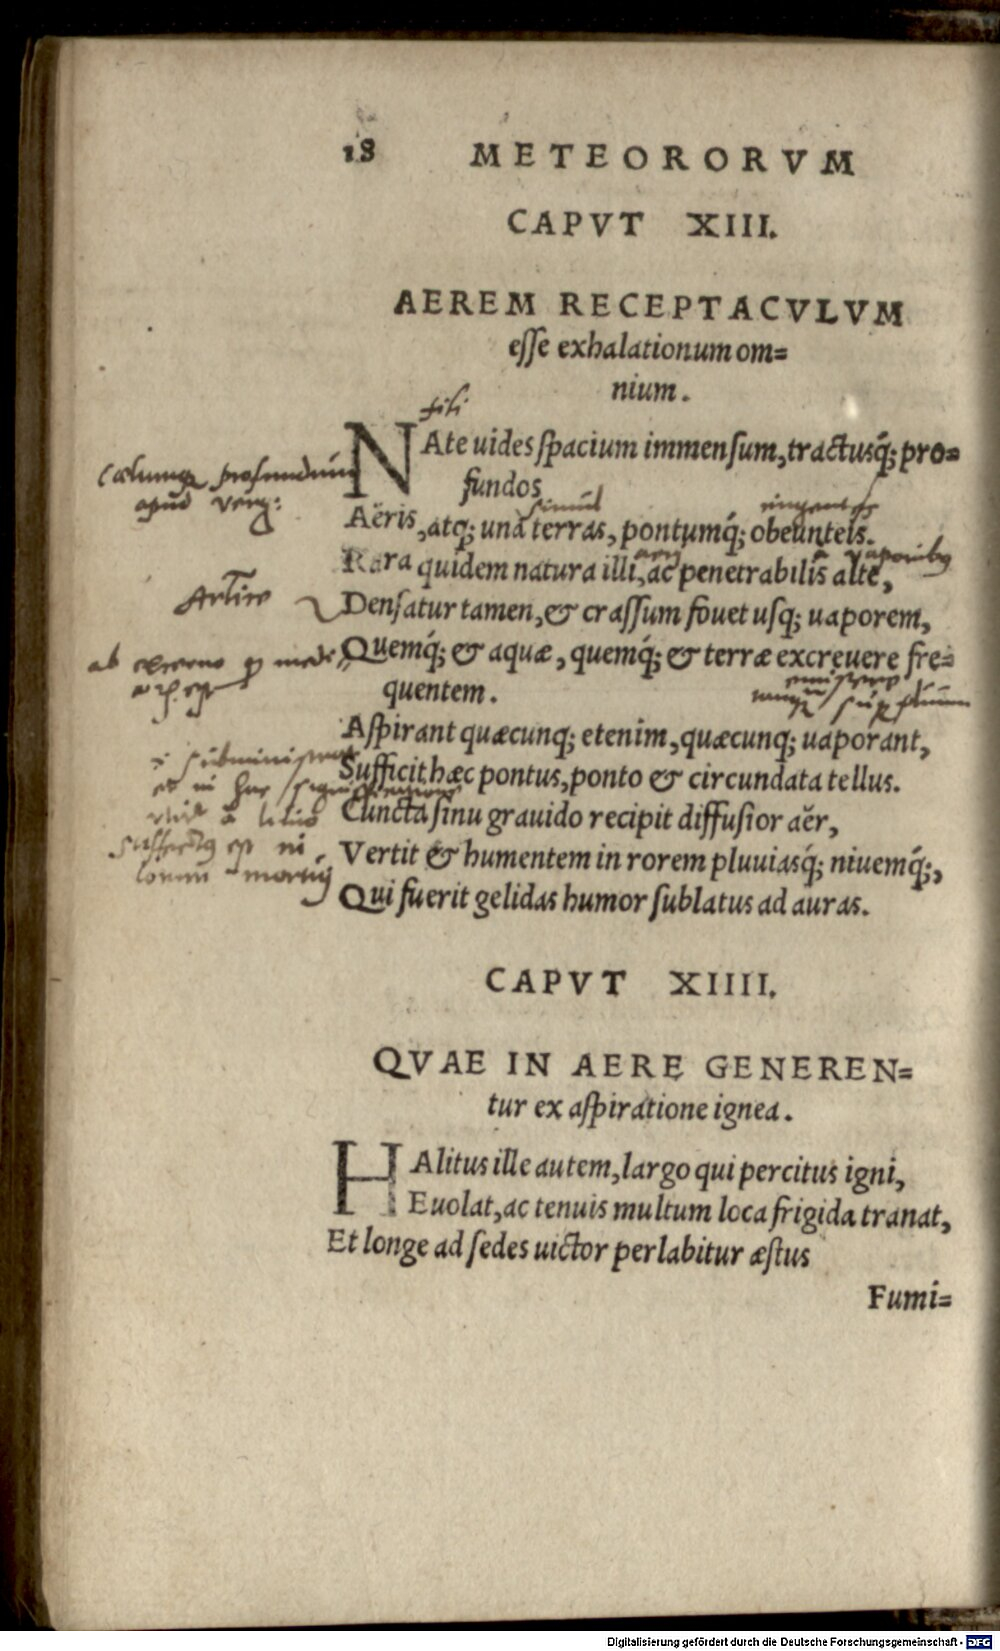 18 METEORORVM
CAPVT XIII.
AEREM RECEPTACVLVM
esse exhalationum om=
nium.
fili
NAte uides spacium immensum, tractusq́; pro=
fundos
cœlumq profundum
apud Verg:
simul
Aëris, atq; unà terras, pontumq́; obeunteis.
aeri
vaporibus
Rara quidem natura illi, ac penetrabilis alte,
Densatur tamen, & crassum fouet usq; uaporem,
Quemq́; & aquæ, quemq́; & terræ excreuere fre=
quentem.
Aspirant quæcunq; etenim, quæcunq; uaporant,
Sufficit hæc pontus, ponto & circundata tellus.
Cuncta sinu grauido recipit diffusior aër,
Vertit & humentem in rorem pluuiasq́; niuemq́;,
Qui fuerit gelidas humor sublatus ad auras.
CAPVT XIIII.
QVAE IN AERE GENEREN=
tur ex aspiratione ignea.
HAlitus ille autem, largo qui percitus igni,
Euolat, ac tenuis multum loca frigida tranat,
Et longe ad sedes uictor perlabitur æstus
Fumi=
Digitalisierung gefördert durch die Deutsche Forschungsgemeinschaft - DFG